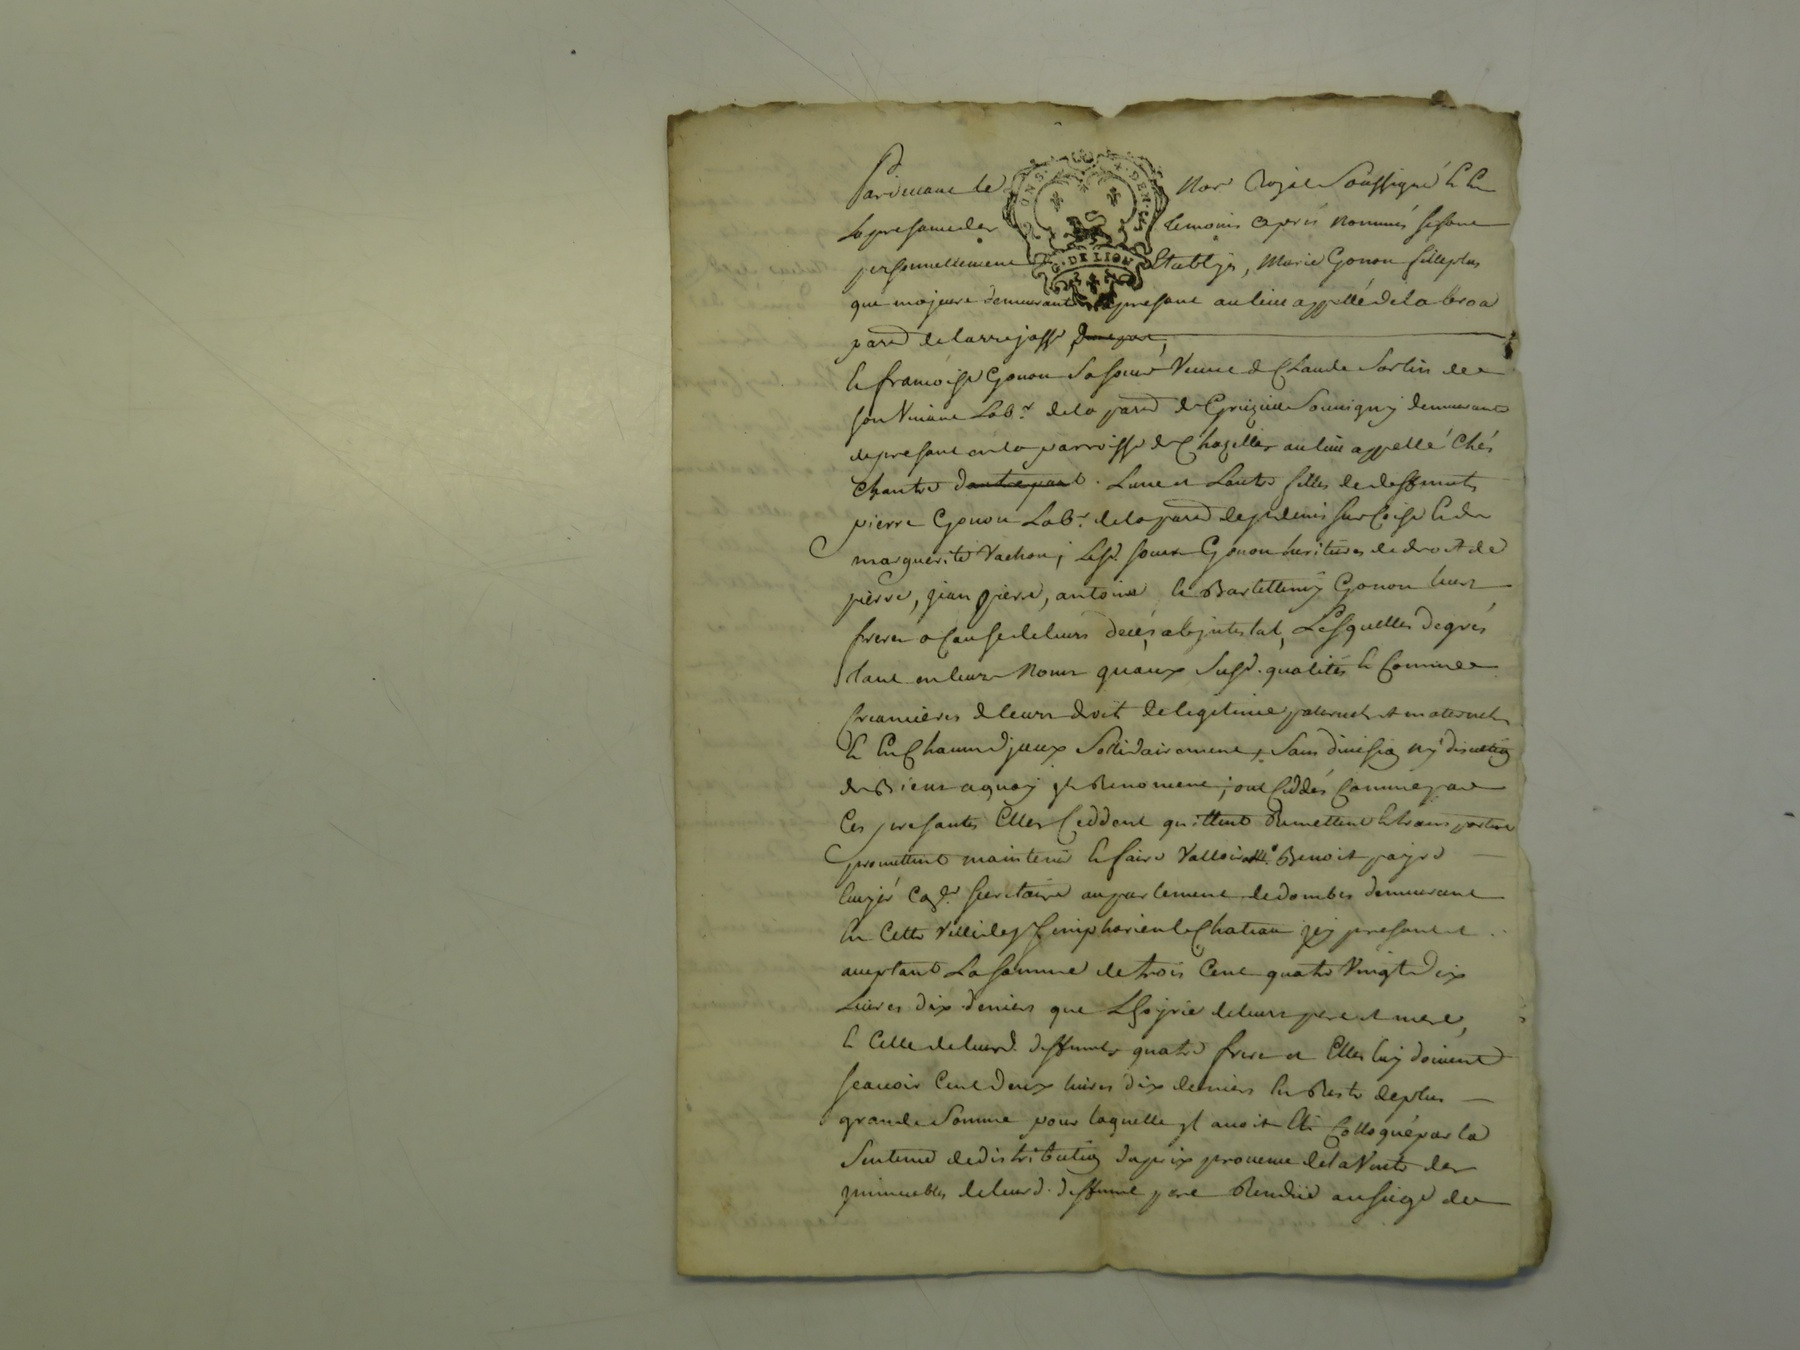 Pardevant le Nore Royal Soussigné & En
La presance des temoins apres nommés se sont
personnellement Etablyes, Marie Gonon fille plus
que majeure demeurante apresant au lieu appellé de la
parsse de larrajasse
& françoise Gonon Sa soeur Veuve de Claude
son Vivant Labr de la parsse de Grezieu Souvigny demeurante
depresant en la parroisse de Chazelles au lieu appellé Chés
Chantre . Lune et Lautre filles de deffunts
pierre Gonon Labr de la parsse de st denis sur Coise & de
marguerite Vachon; Lesd. soeurs Gonon heritieres de droit de
pierre, jean pierre, antoine & Barthellemy Gonon leurs
freres a Cause de leurs decés abjntestat, Lesquelles de grés
tant en leurs Noms quaux susd. qualités & Comme
Creancieres de leurs droit de legitime paternel et maternel
& En Chacun djceux Solidairement, Sans division ny discution
de Biens aquoy jls Renoncent; ont Ceddés Comme par
Ces presantes Elles Ceddent quittent Remettent & transportent
promettent maintenir & faire Valloir Benoit
secretaire au parlement de dombes demeurant
En Cette Ville de st Simphorien le Chateau jcy presant et
acceptant La somme de trois Cent quatre Vingt dix
Livres dix deniers que Lhoyrie de leurs pere et mere,
& Celle de leursd. deffunts quatre freres et Elles luy doivent
scavoir Cent deux livres dix deniers En Reste de plus
grande Somme pour laquelle jl avoit Eté Colloqué par la
Sentence de distribution du prix provenu de la Vente des
jmmeubles de leursd. deffunt pere Rendue au siege de
G. DE LION